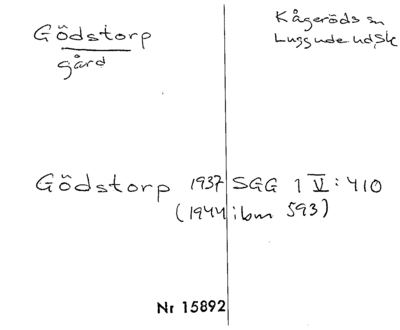 Gödstorp
gård
Kågeröds sn
Luggude hd, Sk
Gödstorp 1937 SGG 1 V: 410
(1944 ibm 593)
Nr 15892